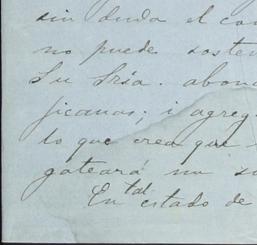 sin duda el con
no puede soste
Su Sría. abon
jicanas; i agreg
lo que crea que
gateará no si
En tal estado de